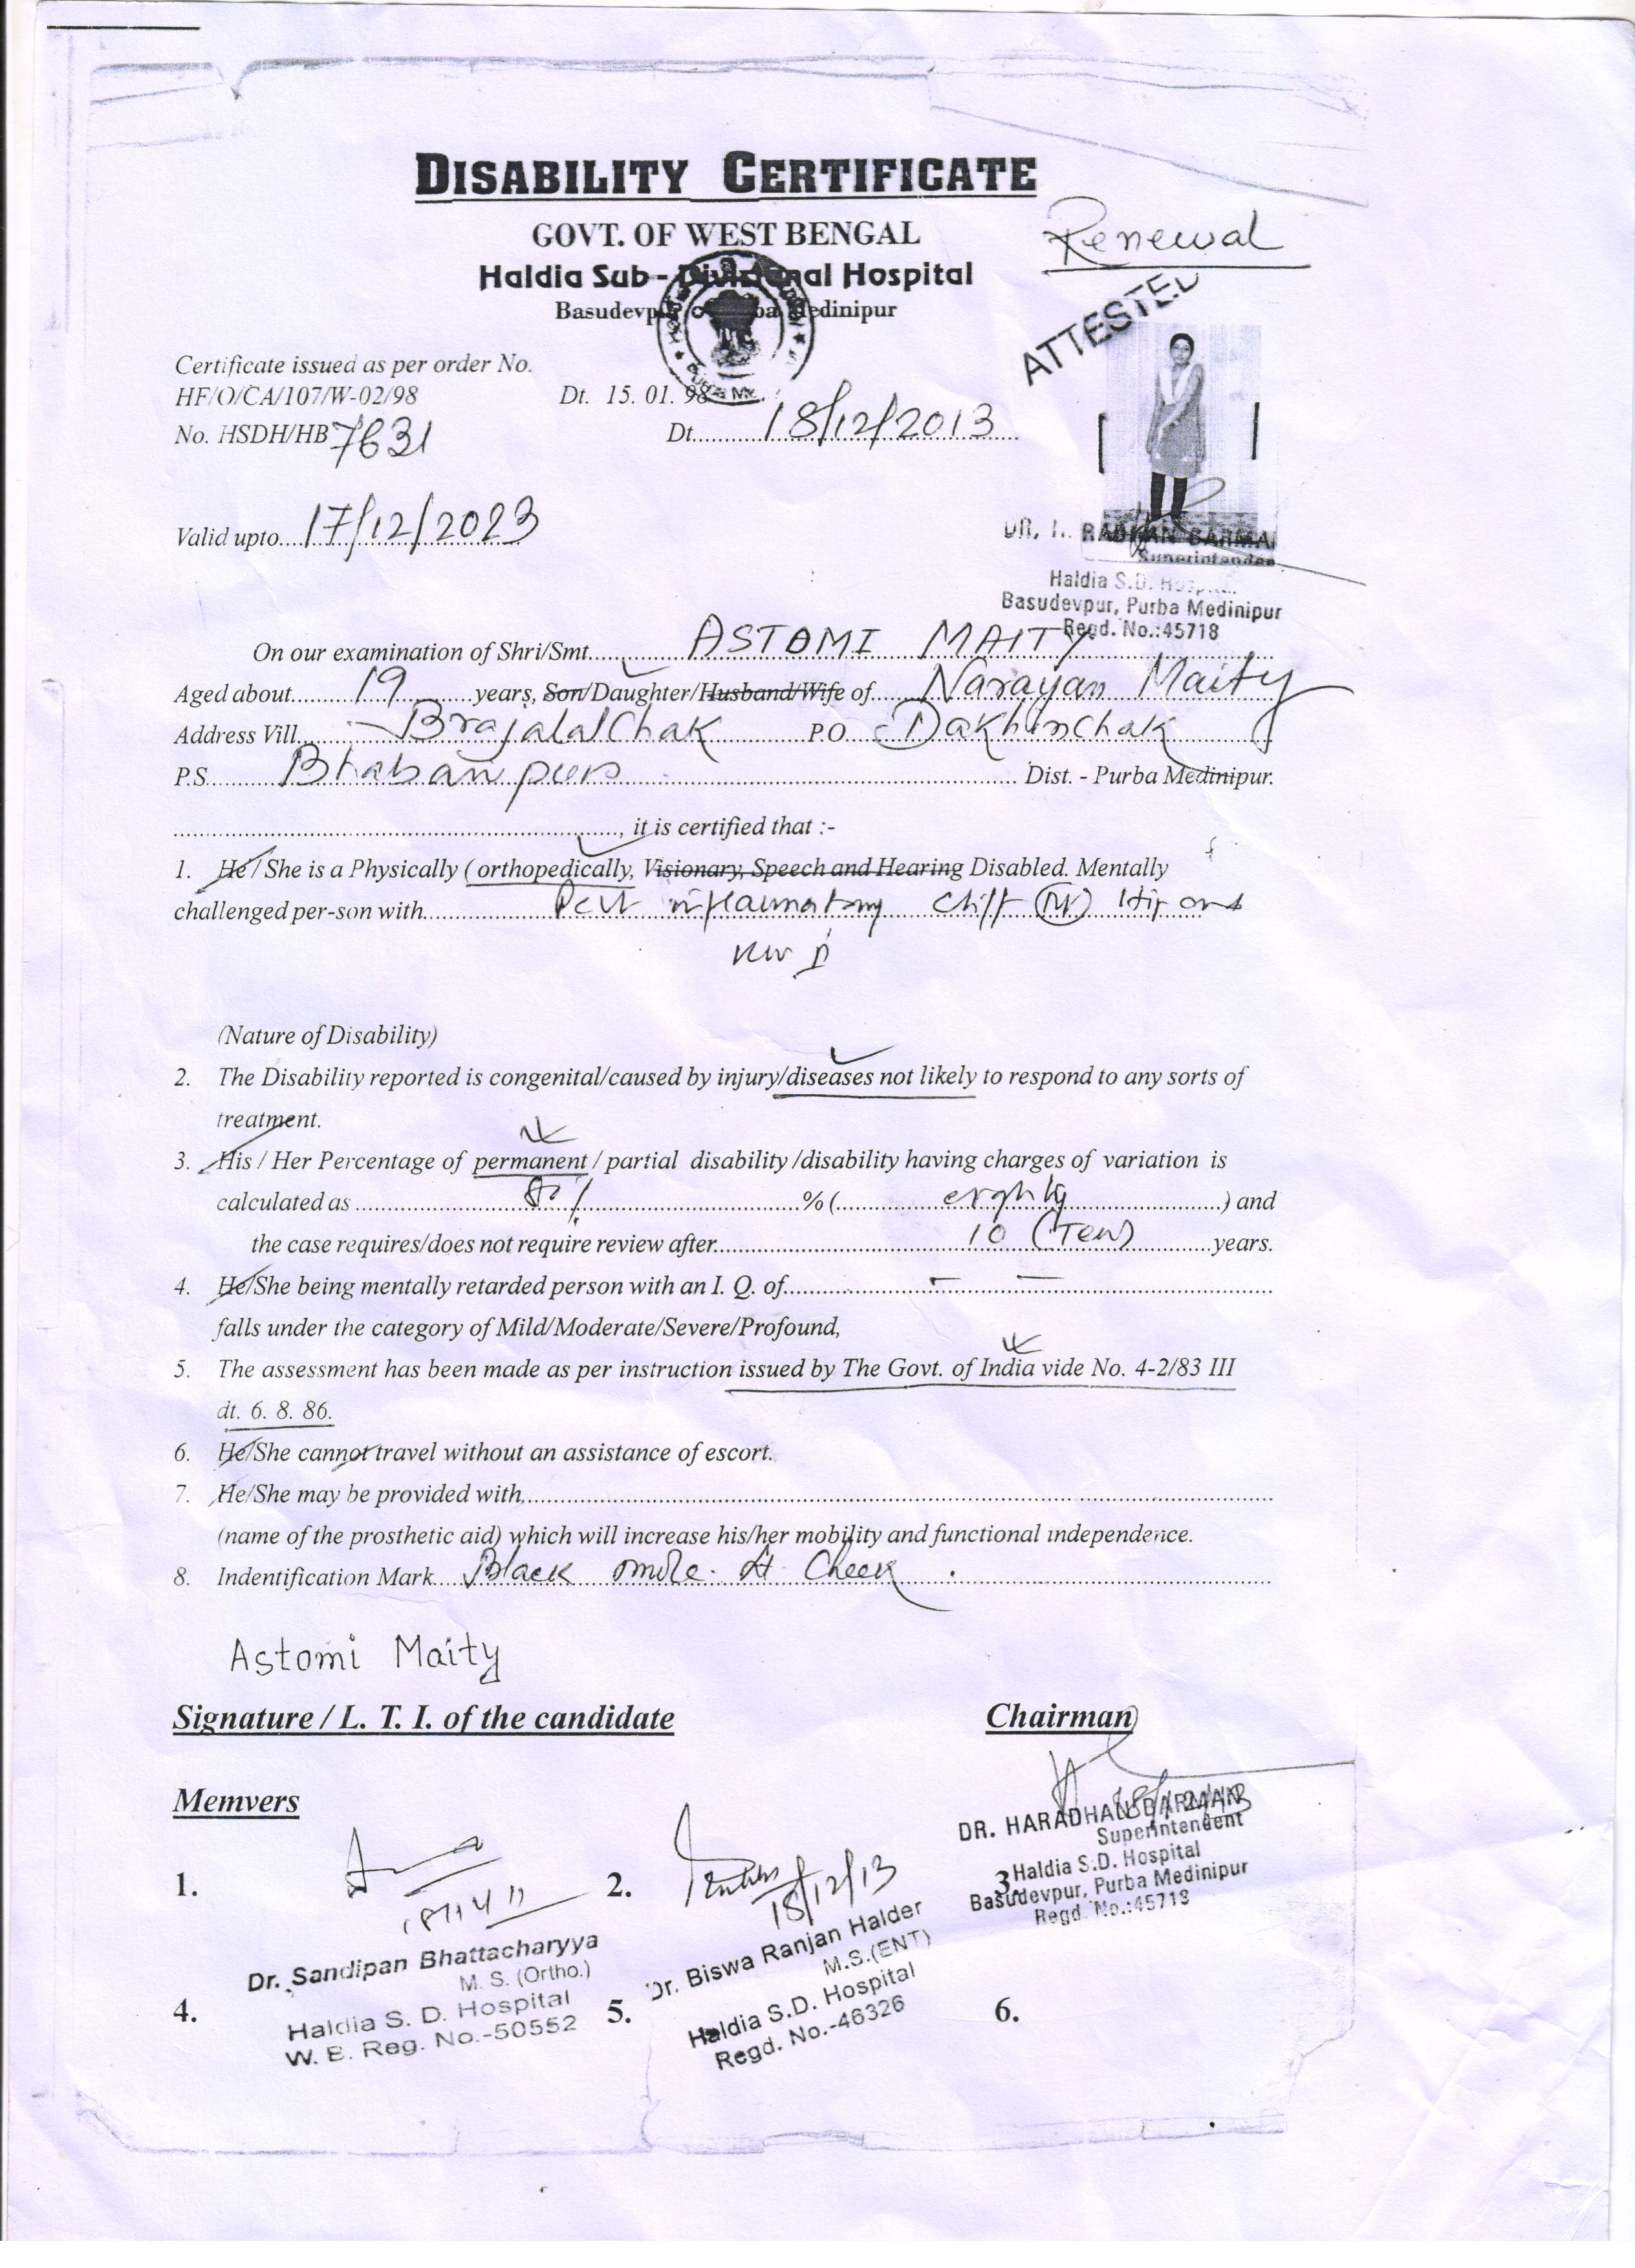 DISABILITY CERTIFICATE
GOVT. OF WEST BENGAL
Renewal
Haldia Sub - Divisional Hospital
Basudevpur Purba Medinipur
ATTESTED
Certificate issued as per order No.
HF/O/CA/107/W-02/98 Dt. 15. 01. 98
No. HSDH/HB 7631 Dt. 18/12/2013
Valid upto 17/12/2023
DR. RADHAN BARMAN
Superintendent
Haldia S.D. Hospital
Basudevpur, Purba Medinipur
Regd. No.:45718
On our examination of Shri/Smt. ASTOMI MAITY
Aged about 19 years, Son/Daughter/Husband/Wife of Narayan Maity
Address Vill. Brajalalchak P.O. Dakhinchak
P.S. Bhabanipur Dist. - Purba Medinipur.
, it is certified that :-
1. He / She is a Physically ( orthopedically, Visionary, Speech and Hearing Disabled. Mentally
challenged per-son with inflammatory Hip and
(Nature of Disability)
2. The Disability reported is congenital/caused by injury/diseases not likely to respond to any sorts of
treatment.
3. His / Her Percentage of permanent / partial disability /disability having charges of variation is
calculated as 80% % ( eighty ) and
the case requires/does not require review after 10 (Ten) years.
4. He/She being mentally retarded person with an I. Q. of
falls under the category of Mild/Moderate/Severe/Profound,
5. The assessment has been made as per instruction issued by The Govt. of India vide No. 4-2/83 III
dt. 6. 8. 86.
6. He/She cannot travel without an assistance of escort.
7. He/She may be provided with
(name of the prosthetic aid) which will increase his/her mobility and functional independence.
8. Indentification Mark Black mole. At Cheek
Astomi Maity
Signature / L. T. I. of the candidate Chairman
Memvers
18/12/13
DR. HARADHAN BARMAN
Superintendent
Haldia S.D. Hospital
Basudevpur, Purba Medinipur
Regd. No.:45718
1. 2. 3.
18/12/13
Dr. Sandipan Bhattacharyya
M. S. (Ortho.)
Haldia S. D. Hospital
W. B. Reg. No.-50552
Dr. Biswa Ranjan Halder
M.S.(ENT)
Haldia S.D. Hospital
Regd. No.-46326
4. 5. 6.